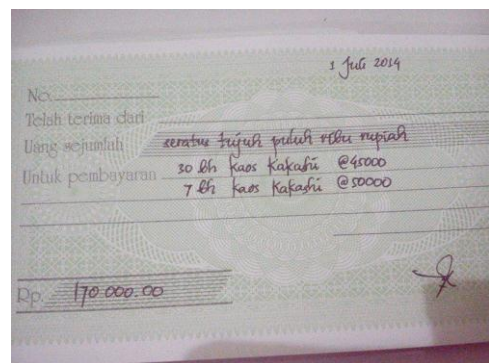 1 Juli 2014
No.
Telah terima dari
Uang sejumlah seratus tujuh puluh ribu rupiah
Untuk pembayaran 30 bh Kaos Kakashi @45000
7 bh Kaos Kakashi @50000
Rp. 170.000.00